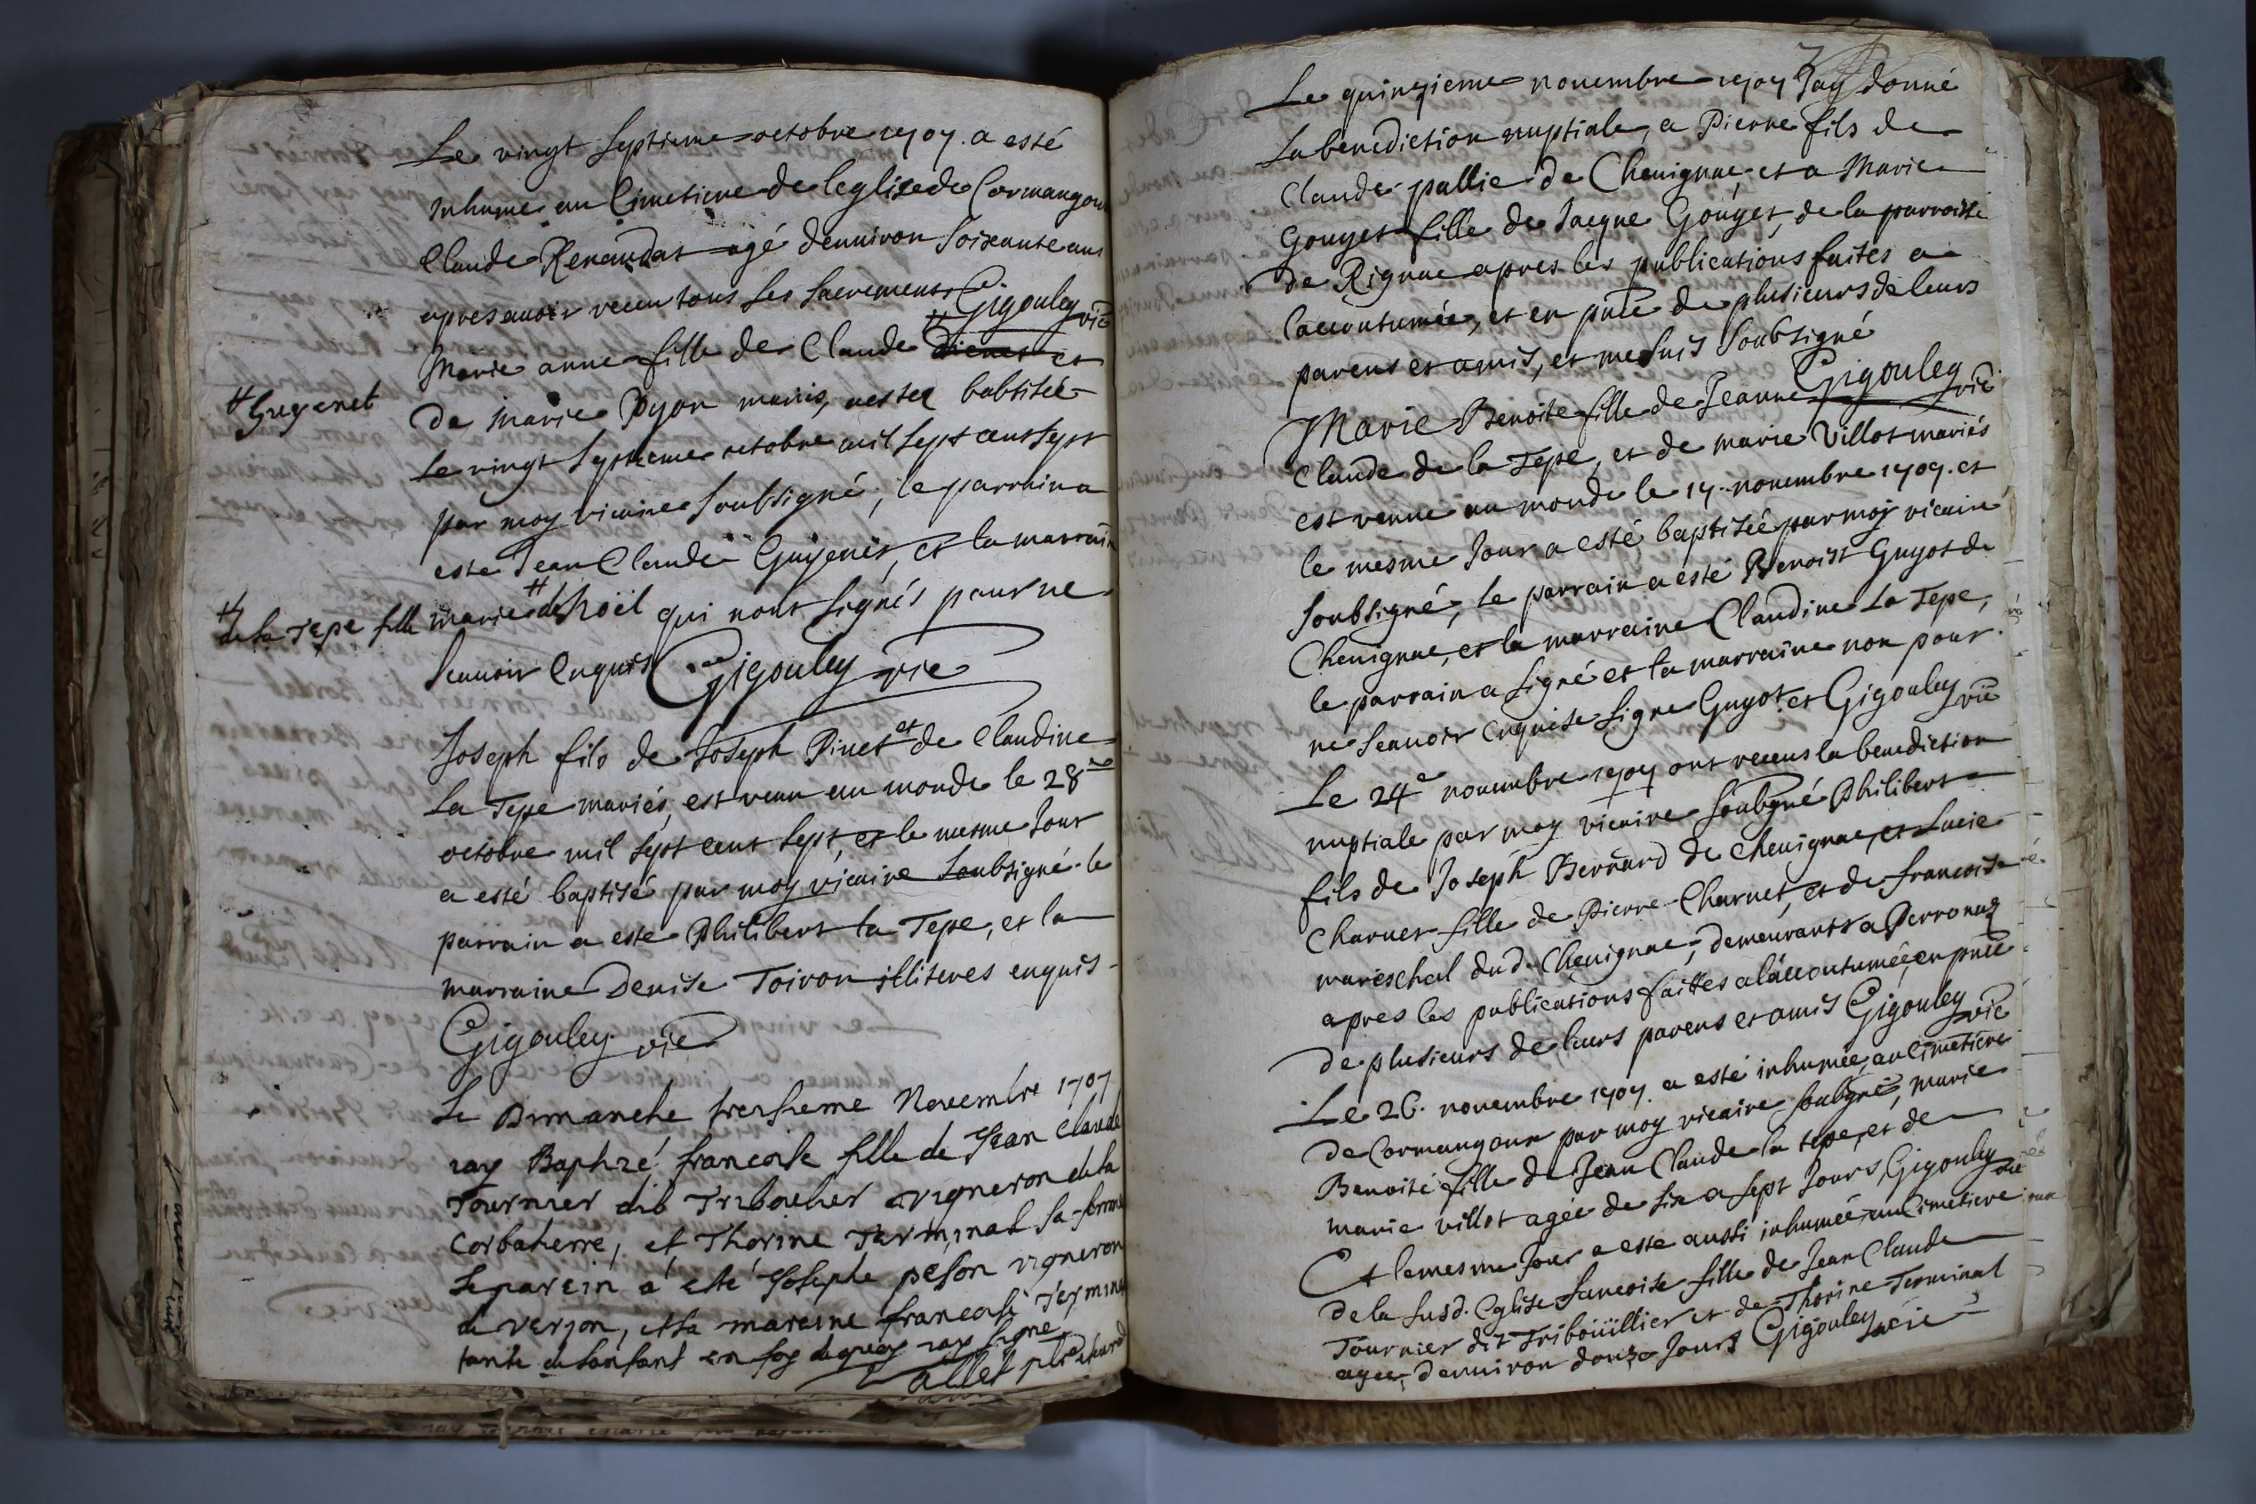 Le vingt septieme octobre 1707. a esté
inhumé au Cimetiere de leglise de Cormangoux
Claude Renaudat agé denuiron soixante ans
apres auoir receu tous ses sacrements Gigouley vic
Marie anne fille de Claude et
# Guyenet
de marie Pyon mariés, a estee babtisée
Le vingt septieme octobre mil sept cent sept
par moy vicaire soubsigné, le parrain a
este Jean Claude Guyenet, et la marraine
# de la Tepe fille marie # de Noël qui nont signés pour ne
scauoir enquis Gigouley vic
Joseph fils de Joseph Pinet et de Claudine
La Tepe mariés, est venu au monde le 28me
octobre mil sept cent sept, et le mesme Jour
a esté baptisé par moy vicaire soubsigné. le
parrain a este Philibert la Tepe, et la
marraine Denise Toiron illiteres enquis
Gigouley vic
Le Dimanche treisieme Novembre 1707
iay Baptizé francoise fille de Jean Claude
Tournier dit Triboulier vigneron de la
Corbaterre, et Thorine Terminat sa femme
Le parein a eté Josephe peson vigneron
a verjon, et la mareine francoise Termina
tante de lanfant en foy de quoy iay signé
allet
Le quinzieme nouembre 1707 Jay donné
La benediction nuptiale, a Pierre fils de
Claude pallie de Cheuignac, et a Marie
Gouyet fille de Jacque Goüyet, de la parroisse
De Rignac apres les publications faites a
laccoutumée, et en pñce de plusieurs de leurs
parens et amis, et me suis soubsigné
Gigouley vic
Marie Benoite fille de Jeanne
Claude de la Tepe, et de marie Villot mariés
est venue au monde le 17. nouembre 1707. et
le mesme Jour a esté baptisée par moy vicaire
soubsigné, le parrain a esté Benoist Guyot de
Cheuignac, et la marraine Claudine La Tepe,
le parrain a signé et la marraine non pour
ne scauoir enquise signe Guyot. et Gigouley vic
Le 24e nouembre 1707 ont receus la benediction
nuptiale par moy vicaire soubsgné Philibert
fils de Joseph Bernard de cheuignac, et Lucie
Charnet fille de Pierre Charnet, et de francoise
mareschal dud. Cheuignac, demeurants a Perronas
apres les publications faittes a laccoutumée, en pñce
de plusieurs de leurs parens et amis Gigouley vic
Le 26. nouembre 1707. a esté inhumée, au Cimetiere
de Cormangoux par moy vicaire soubsgné, marie
Benoite fille de Jean Claude la tepe, et de
marie villot agée de six a sept Jours, Gigouley vic
Et le mesme Jour a este aussi inhumée, au Cimetiere
de la susd. Eglise francoise fille de Jean Claude
Tournier dit Triboüillier et de Thorine Terminat
agée, denuiron douze Jours Gigouley vic